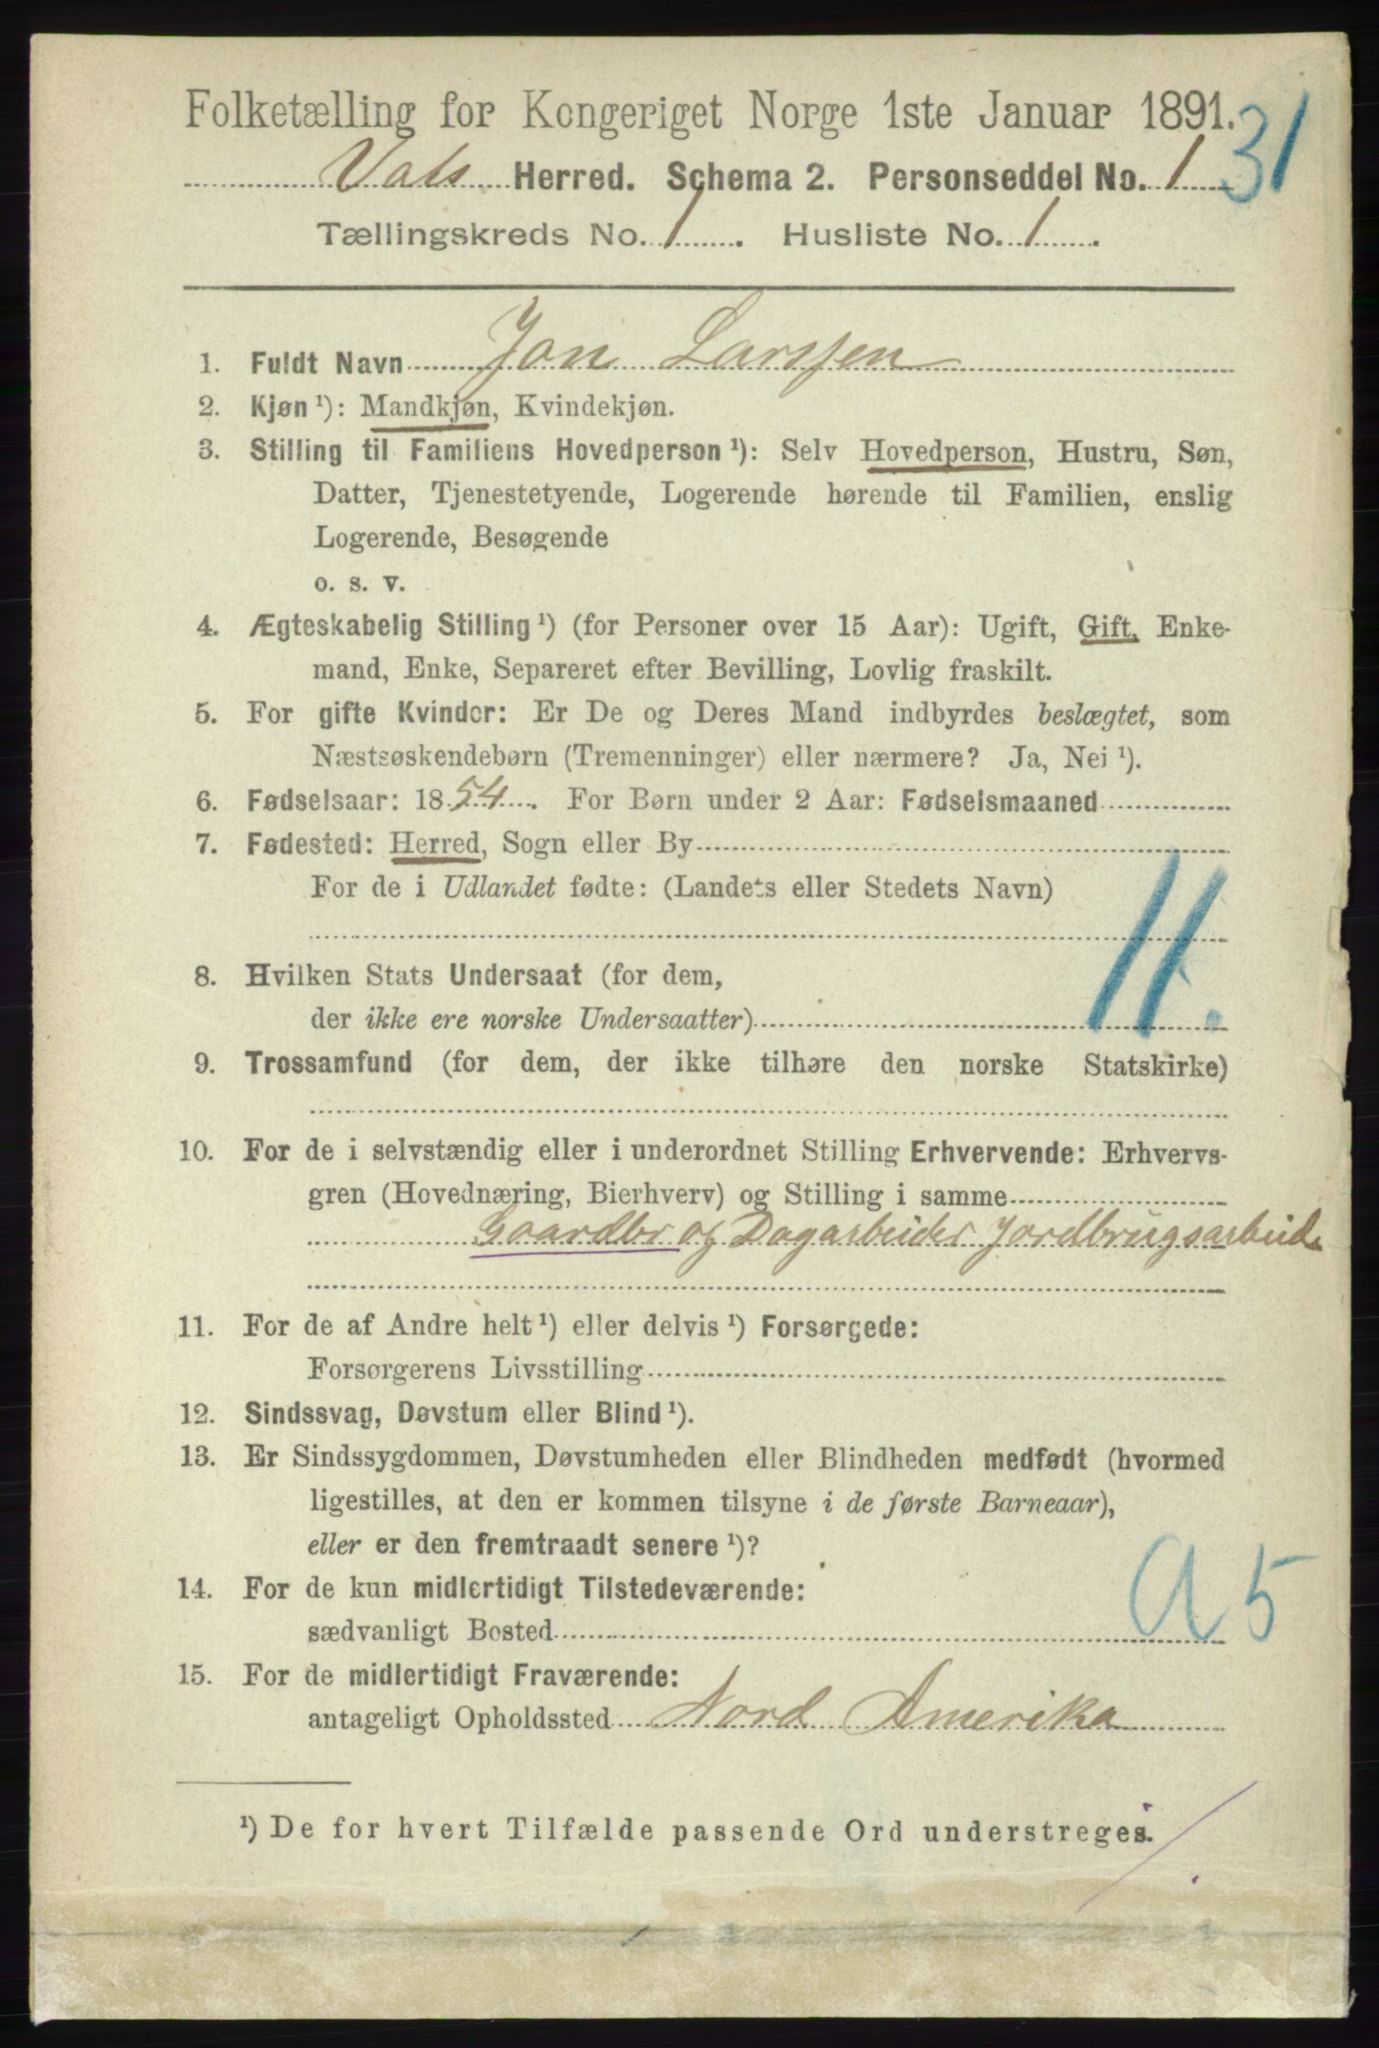 Folketælling for Kongeriget Norge 1ste Januar 1891.
31
Vats Herred. Schema 2. Personseddel No. 1
Tællingskreds No. 1. Husliste No. 1.
1. Fuldt Navn Jon Larssen
2. Kjøn ¹): Mandkjøn, Kvindekjøn.
3. Stilling til Familiens Hovedperson ¹): Selv Hovedperson, Hustru, Søn,
Datter, Tjenestetyende, Logerende hørende til Familien, enslig
Logerende, Besøgende
o. s. v.
4. Ægteskabelig Stilling ¹) (for Personer over 15 Aar): Ugift, Gift, Enke-
mand, Enke, Separeret efter Bevilling, Lovlig fraskilt.
5. For gifte Kvinder: Er De og Deres Mand indbyrdes beslægtet, som
Næstsøskendebørn (Tremenninger) eller nærmere? Ja, Nei ¹).
6. Fødselsaar: 1854. For Børn under 2 Aar: Fødselsmaaned
7. Fødested: Herred, Sogn eller By
For de i Udlandet fødte: (Landets eller Stedets Navn)
8. Hvilken Stats Undersaat (for dem,
der ikke ere norske Undersaatter)
9. Trossamfund (for dem, der ikke tilhøre den norske Statskirke)
10. For de i selvstændig eller i underordnet Stilling Erhvervende: Erhvervs-
gren (Hovednæring, Bierhverv) og Stilling i samme
Gaardbr og Dagarbeider Jordbrugsarbeid
11. For de af Andre helt ¹) eller delvis ¹) Forsørgede:
Forsørgerens Livsstilling
12. Sindssvag, Døvstum eller Blind ¹).
13. Er Sindssygdommen, Døvstumheden eller Blindheden medfødt (hvormed
ligestilles, at den er kommen tilsyne i de første Barneaar),
eller er den fremtraadt senere ¹)?
14. For de kun midlertidigt Tilstedeværende:
sædvanligt Bosted
a 5
15. For de midlertidigt Fraværende:
antageligt Opholdssted Nord Amerika
¹) De for hvert Tilfælde passende Ord understreges.